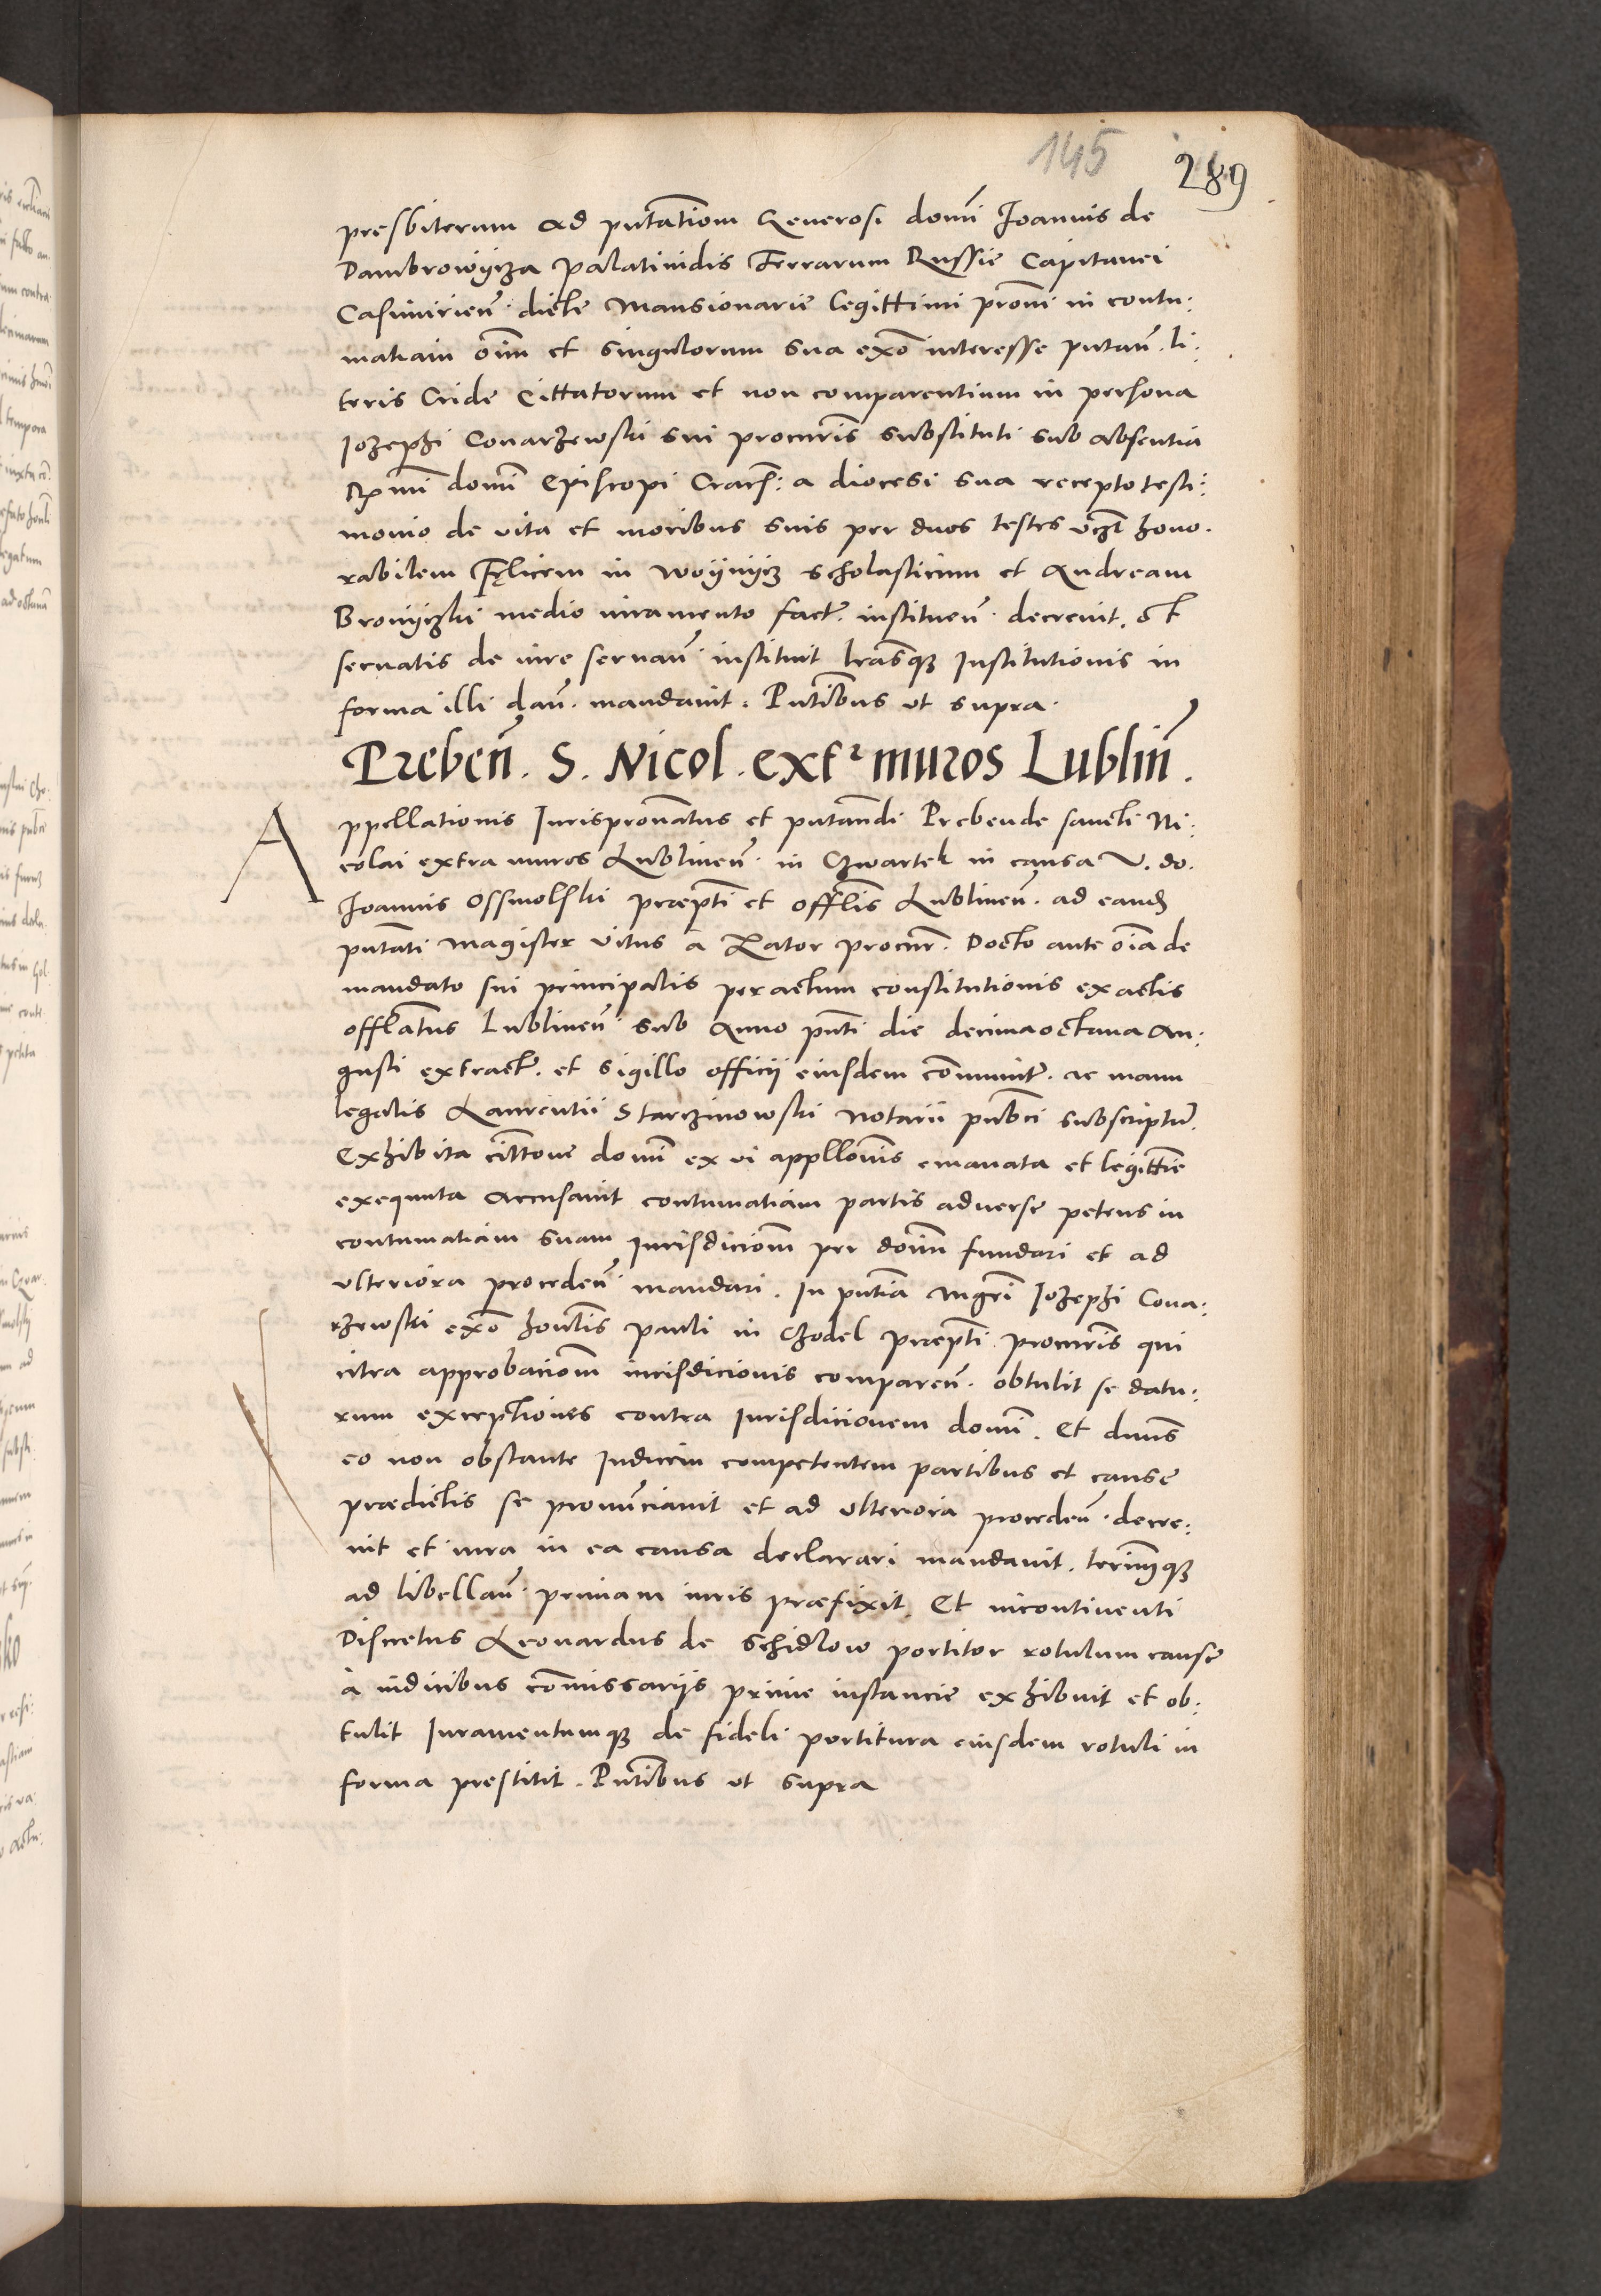 145
289
presbiterum ad pn̄tationem Generosi domi Joannis de
Dambrowycza palatinidis Terrarum Russie Capitanei
Casimirien̄. dicte Mansionarie legittimi pron̄i in contu:
matiam oim̄ et singulorum sua exō interesse putan̄. li:
teris Cride Cittatorum et non comparentium in persona
Iozephi Conarzewski sui procur̄is substituti sub absentia
Rx̄mi domī Episcopi Crac̄: a diocesi sua recepto testi:
monio de vita et moribus suis per duos testes vcz̄t hono.
rabilem Fęlicem in Woynycz scholasticum et Andream
Bronyczki medio iuramento fact̄. instituen̄. decreuit. et
seruatis de iure seruan̄. instituit lr̄asqȝ Institutionis in
forma illi dan̄. mandauit. Pn̄tibus ut supra.
Preben̄. S. Nicol. extr̄ muros Lublin̄.
Appellationis Jurispron̄atus et pn̄tandi Prebende sancti Ni:
colai extra muros Lublinen̄. in Czwartek in causa V. do.
Joannis Ossmolski præpt̄i et offlīs Lublinen̄. ad eandȩ
pn̄tati Magister Vitus a Rator procur̄. Docto ante oīa de
mandato sui principalis per actum constitutionis ex actis
offlātus Lublinen̄. sub Anno pn̄ti die decimaoctaua Au:
gusti extract̄. et sigillo officii eiusdem cōmunit̄. ac manu
legalis Laurentii Starczinowski Notarii publ̄ci subscriptū.
Exhibita citt̄one domī ex vi appllōnis emanata et legittīe
exequuta accusauit contumatiam partis aduerse petens in
contumatiam suam iurisdiciom̄ per dom̄ fundari et ad
vlteriora proceden̄. mandari. In pn̄tia Mgr̄i Iozephi Cona:
rzewski exō hon̄lis pauli in Chodel præpt̄i procur̄is qui
citra approbaciom̄ iurisdicionis comparen̄. obtulit se datu:
rum exceptiones contra Iurisdicionem domī. Et dn̄us
eo non obstante Iudicem competentem partibus et cause
prædictis se pronun̄ciauit et ad vlteriora proceden̄. decre:
uit et iura in ea causa declarari mandauit. termīqȝ
ad libellan̄. primam iuris præfixit. Et incontinenti
Discretus Leonardus de Schidlow portitor rotulum cause
à iudicibus cōmissariis prime instancie exhibuit et ob:
tulit Iuramentumqȝ de fideli portitura eiusdem rotuli in
forma prestitit. Pn̄tibus ut supra